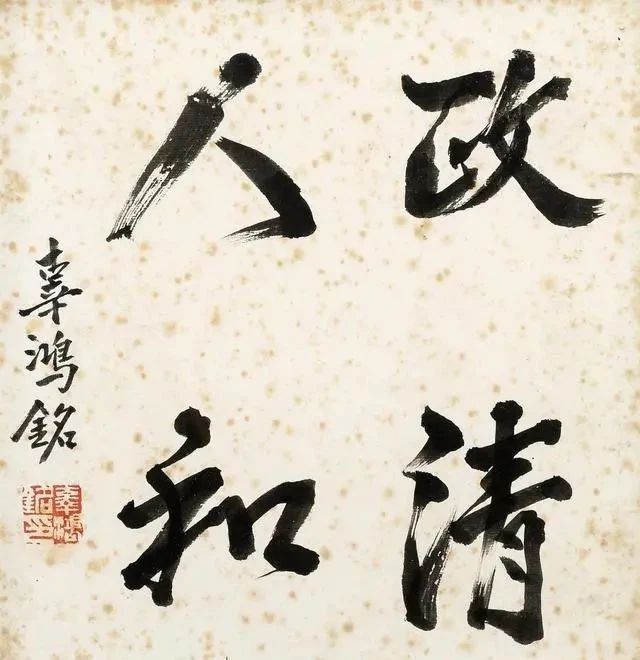 政清
人和
辜鴻銘
辜鴻銘印